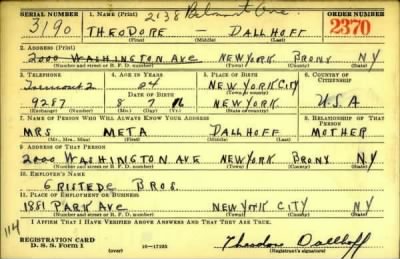 SERIAL NUMBER 1. NAME (Print) 2138 Belmont Ave ORDER NUMBER
3190 THEODORE — DALLHOFF 2370
(First) (Middle) (Last)
2. ADDRESS (Print)
2000 WASHINGTON AVE NEW YORK BRONX NY
(Number and street or R. F. D. number) (Town) (County) (State)
3. TELEPHONE 4. AGE IN YEARS 5. PLACE OF BIRTH 6. COUNTRY OF CITIZENSHIP
Tremont 2 24 NEW YORK CITY
DATE OF BIRTH (Town or county)
9287 8 7 16 NY U.S.A
(Exchange) (Number) (Mo.) (Day) (Yr.) (State or country)
7. NAME OF PERSON WHO WILL ALWAYS KNOW YOUR ADDRESS 8. RELATIONSHIP OF THAT PERSON
MRS META DALLHOFF MOTHER
(Mr., Mrs., Miss) (First) (Middle) (Last)
9. ADDRESS OF THAT PERSON
2000 WASHINGTON AVE NEW YORK BRONX N.Y
(Number and street or R. F. D. number) (Town) (County) (State)
10. EMPLOYER'S NAME
GRISTEDE BROS.
11. PLACE OF EMPLOYMENT OR BUSINESS
1881 PARK AVE NEW YORK CITY NY
(Number and street or R. F. D. number) (Town) (County) (State)
I AFFIRM THAT I HAVE VERIFIED ABOVE ANSWERS AND THAT THEY ARE TRUE.
114
REGISTRATION CARD
D. S. S. FORM 1 (over) 16—17105 Theodore Dallhoff
(Registrant's signature)